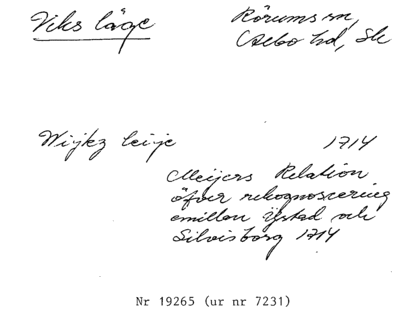 Viks läge
Rörums sn,
Albo hd, Sk
Wijkz leije 1714
Meijers Relation
öfver rekognoscering
emillan Ystad och
Silvisborg 1714
Nr 19265 (ur nr 7231)